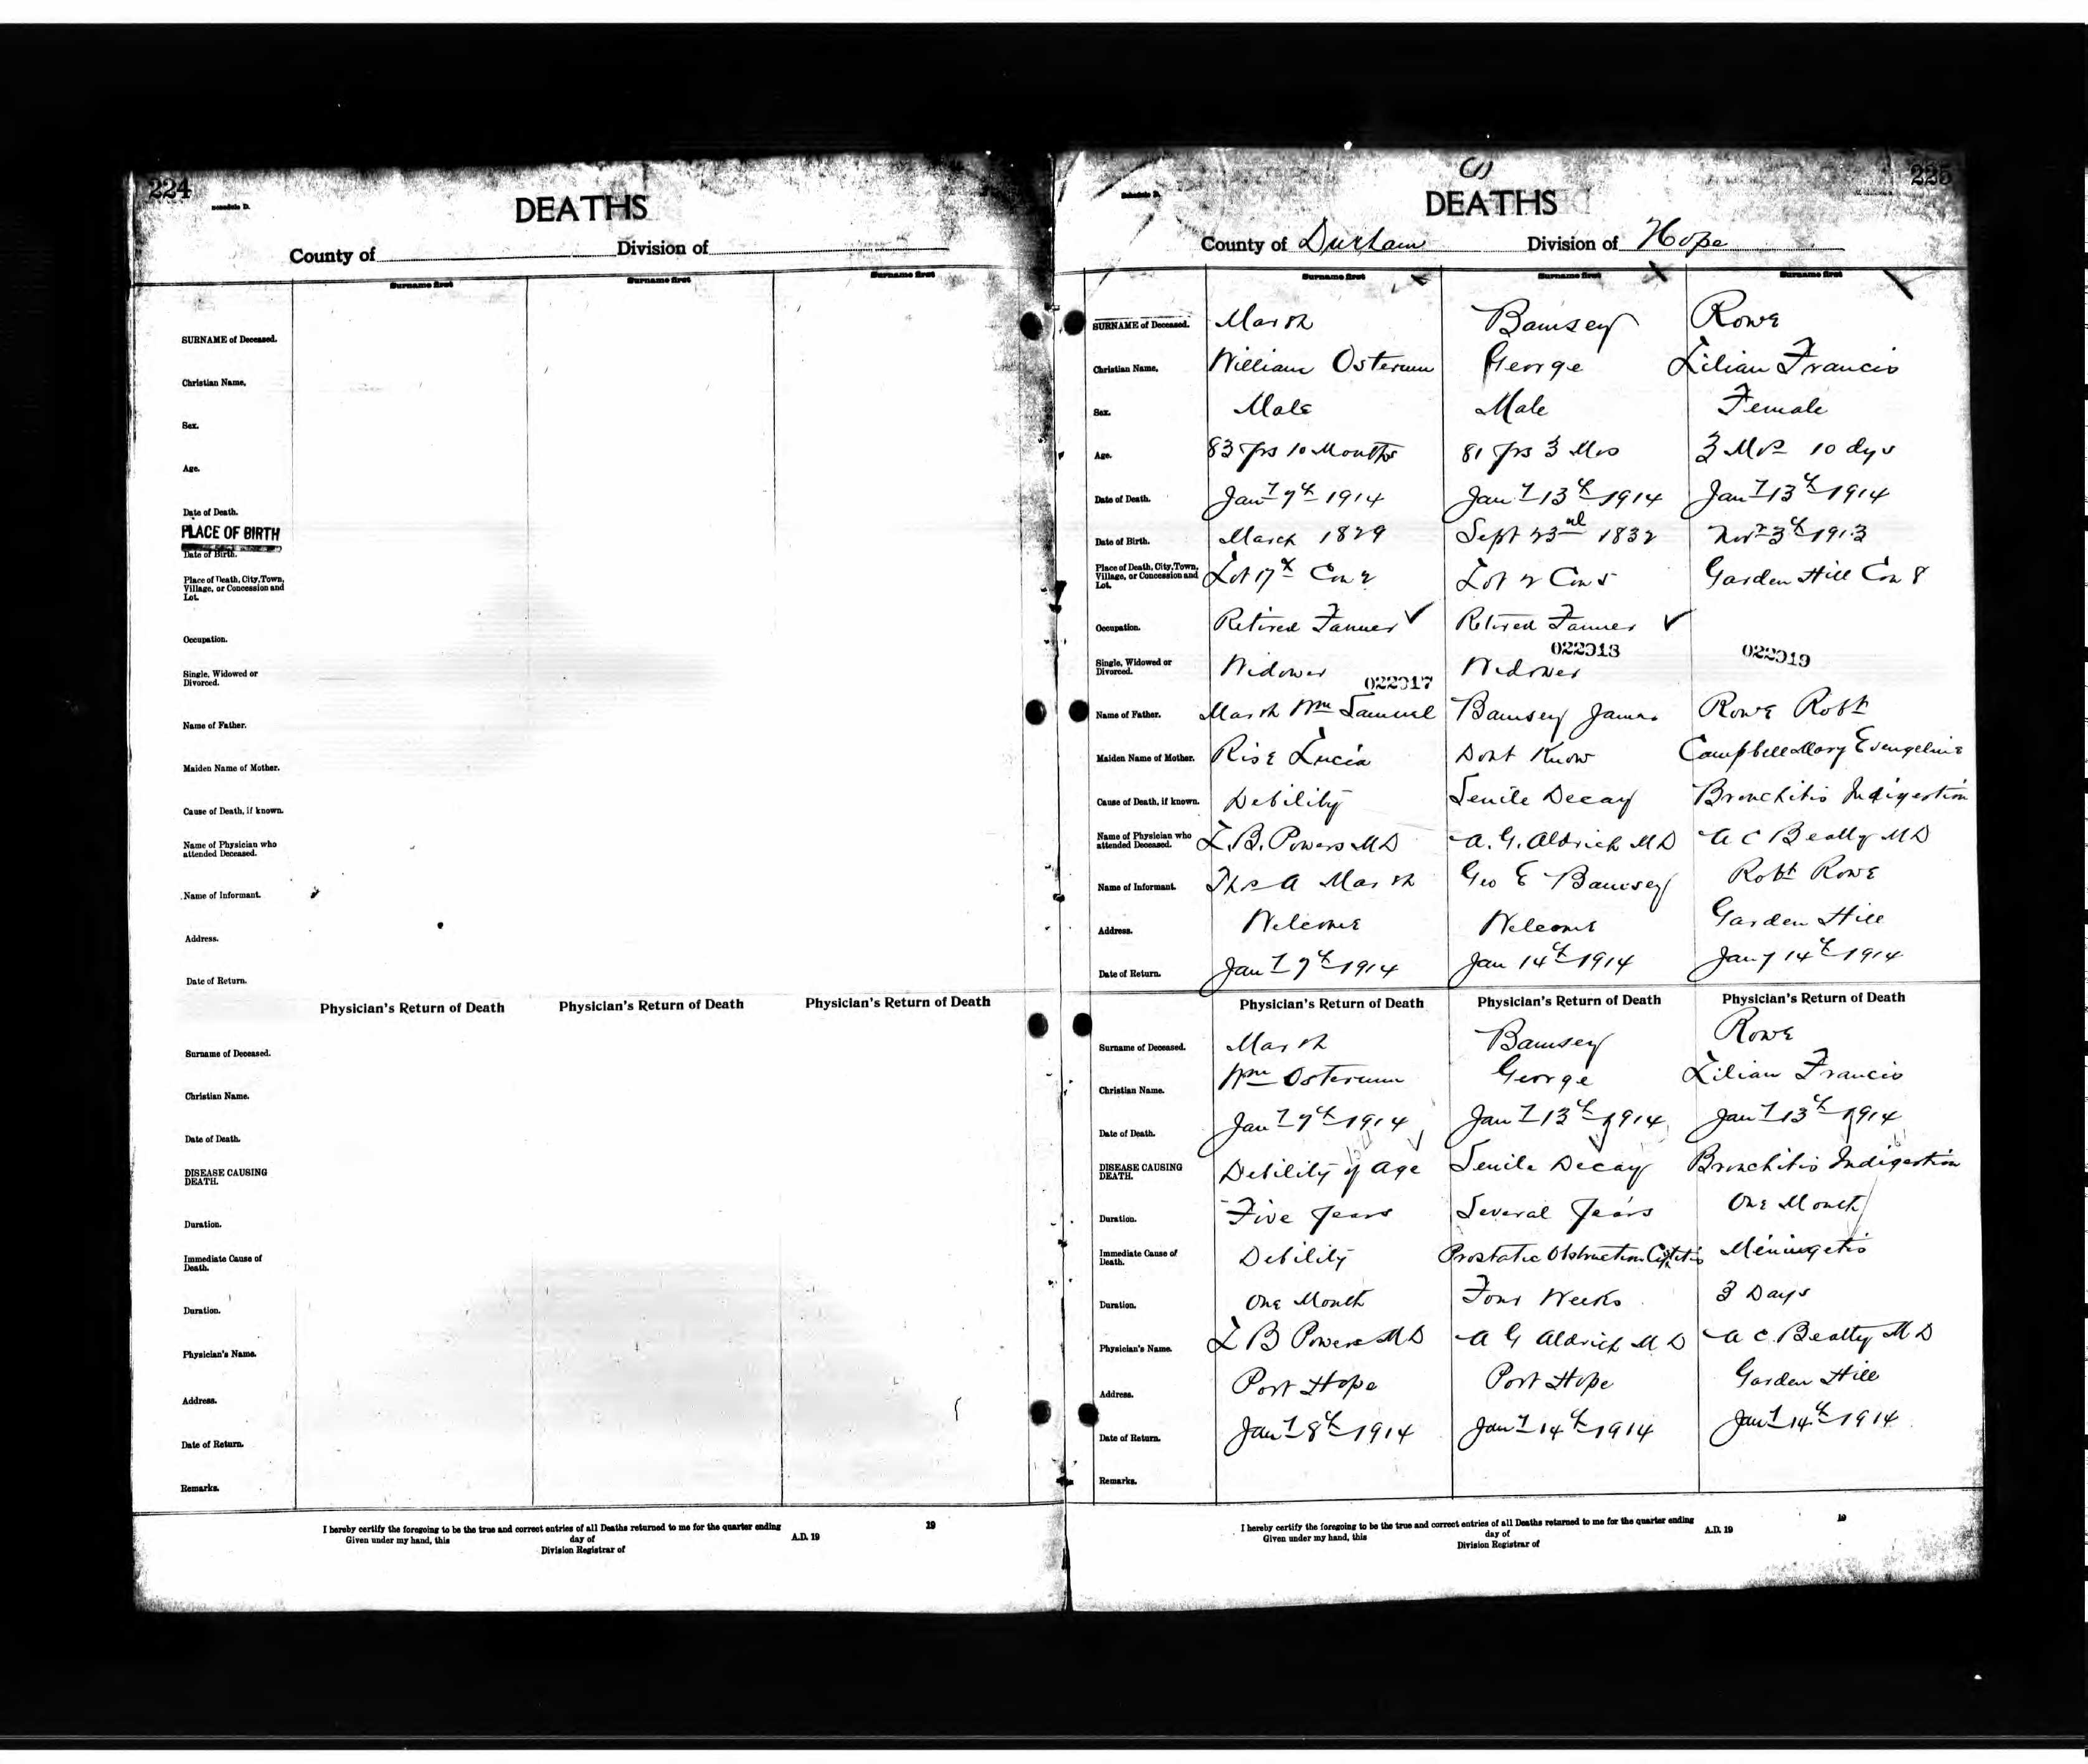 224
Schedule D.
DEATHS
County of Division of
Surname first Surname first Surname first
SURNAME of Deceased.
Christian Name.
Sex.
Age.
Date of Death.
PLACE OF BIRTH
Date of Birth.
Place of Death, City, Town,
Village, or Concession and
Lot.
Occupation.
Single, Widowed or
Divorced.
Name of Father.
Maiden Name of Mother.
Cause of Death, if known.
Name of Physician who
attended Deceased.
Name of Informant.
Address.
Date of Return.
Physician's Return of Death Physician's Return of Death Physician's Return of Death
Surname of Deceased.
Christian Name.
Date of Death.
DISEASE CAUSING
DEATH.
Duration.
Immediate Cause of
Death.
Duration.
Physician's Name.
Address.
Date of Return.
Remarks.
I hereby certify the foregoing to be the true and correct entries of all Deaths returned to me for the quarter ending 19
Given under my hand, this day of A.D. 19
Division Registrar of
(1)
225
Schedule D.
DEATHS
County of Durham Division of Hope
Surname first Surname first Surname first
SURNAME of Deceased. Marsh Bamsey Rowe
Christian Name. William Osterum George Lilian Francis
Sex. Male Male Female
Age. 83 yrs 10 Months 81 yrs 3 Mos 3 Mos 10 dys
Date of Death. Jany 7th 1914 Jany 13th 1914 Jany 13th 1914
Date of Birth. March 1829 Sept 23rd 1832 Nov 3th 1913
Place of Death, City, Town,
Village, or Concession and
Lot. Lot 17th Con 2 Lot 2 Con 5 Garden Hill Con 8
Occupation. Retired Farmer ✓ Retired Farmer ✓
Single, Widowed or
Divorced. Widower 022917 Widower 022918 022919
Name of Father. Marsh Wm Samuel Bamsey James Rowe Robt
Maiden Name of Mother. Rise Lucia Dont Know Campbell Mary Evengeline
Cause of Death, if known. Debility Senile Decay Bronchitis Indigestion
Name of Physician who
attended Deceased. L. B. Powers M D A. G. Aldrich M D A C Beatty M D
Name of Informant. Thos A Marsh Geo E Bamsey Robt Rowe
Address. Welcome Welcome Garden Hill
Date of Return. Jany 7th 1914 Jan 14th 1914 Jany 14th 1914
Physician's Return of Death Physician's Return of Death Physician's Return of Death
Surname of Deceased. Marsh Bamsey Rowe
Christian Name. Wm Osterum George Lilian Francis
Date of Death. Jany 7th 1914 Jany 13th 1914 Jany 13th 1914
DISEASE CAUSING
DEATH. Debility of Age Senile Decay Bronchitis Indigestion
Duration. Five Years Several Years One Month
Immediate Cause of
Death. Debility Prostatic Obstruction Cystitis Meningetis
Duration. One Month Four Weeks 3 Days
Physician's Name. L B Powers M D A G Aldrich M D A C. Beatty M D
Address. Port Hope Port Hope Garden Hill
Date of Return. Jany 8th 1914 Jany 14th 1914 Jany 14th 1914
Remarks.
I hereby certify the foregoing to be the true and correct entries of all Deaths returned to me for the quarter ending 19
Given under my hand, this day of A.D. 19
Division Registrar of